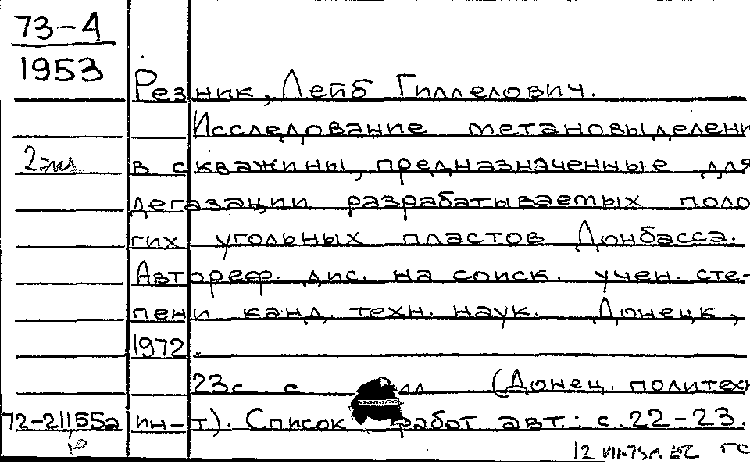 73-4
1953
Резник, Лейб Гиллелович.
Исследование метановыделени
2 экз
в скважины, предназначенные для
дегазации разрабатываемых поло
гих угольных пластов Донбасса.
Автореф. дис. на соиск. учен. сте-
пени канд. техн. наук. Донецк,
1972.
23с. с ил. (Донец. политех
72-21155а
ин-т). Список работ авт.: с.22-23.